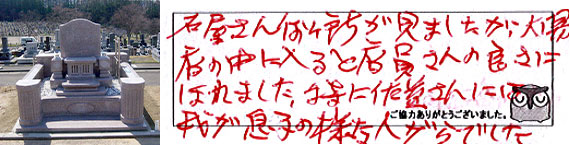 石屋さんは何軒が見ましたが大場
店の中に入ると店員さんの良さに
ほれました。特に佐賀さんには
我が息子の様な人がらでした
ご協力ありがとうございました。